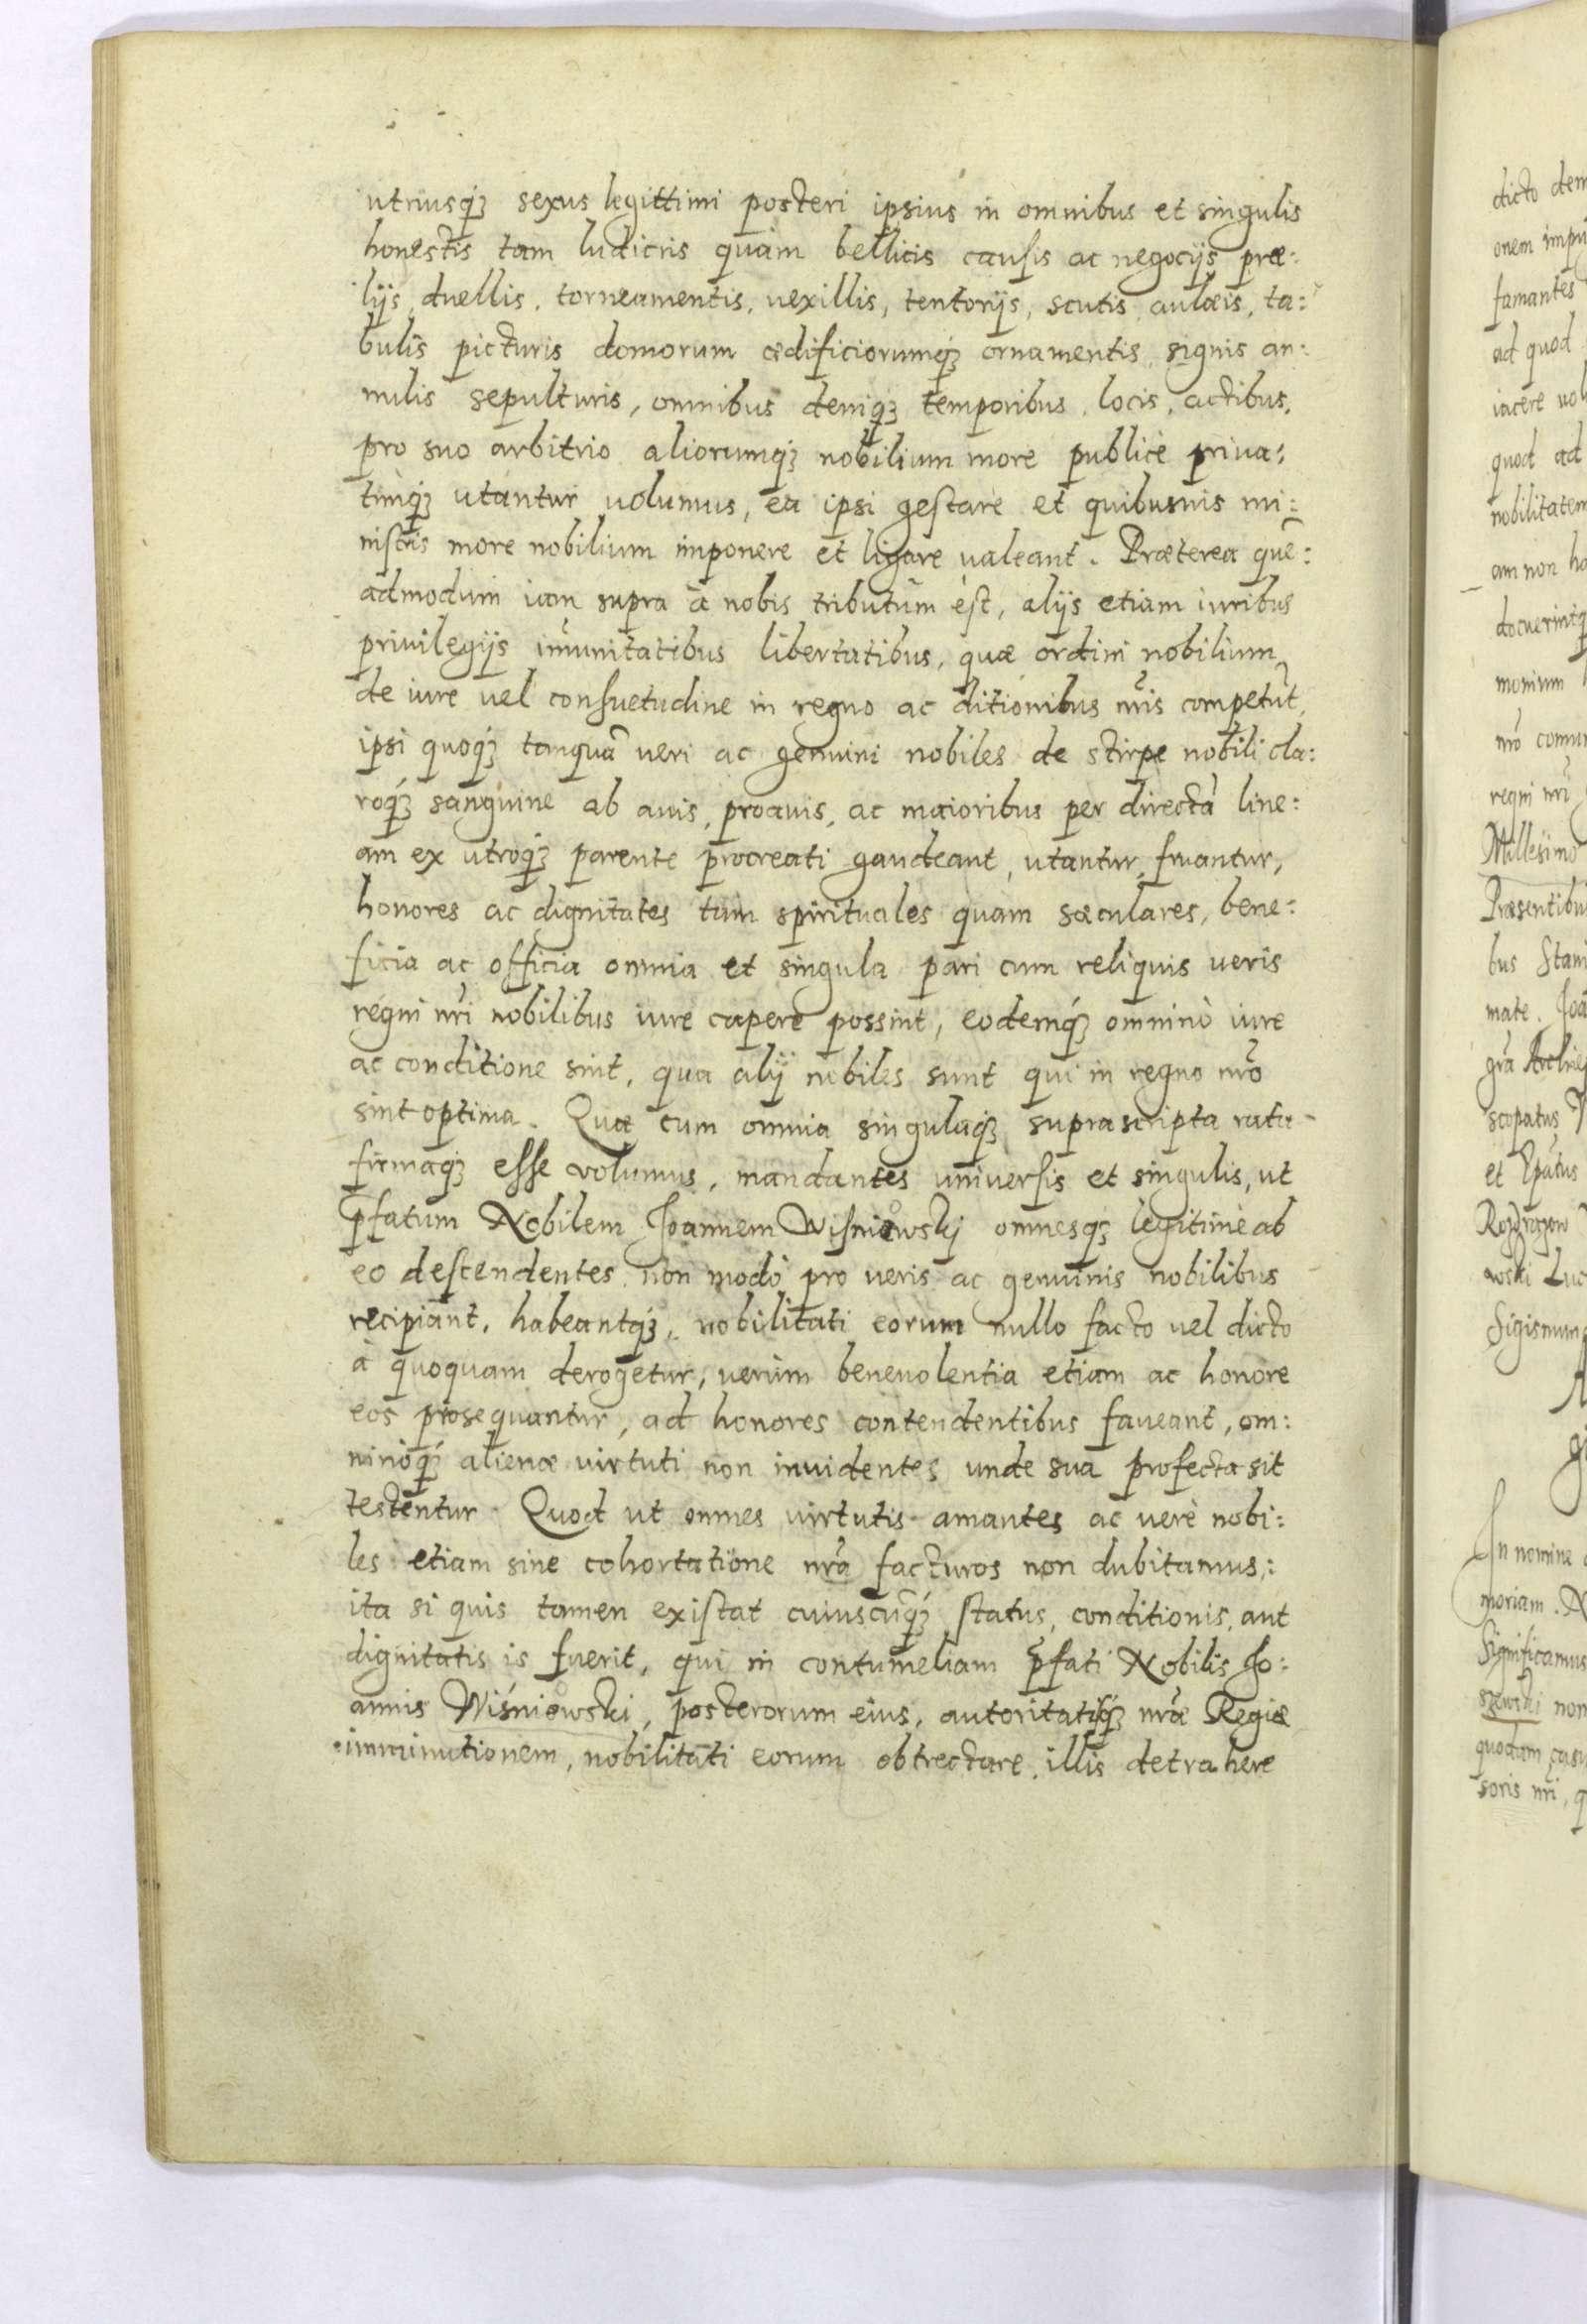 utriusq́ꝫ sexus legittimi posteri ipsius in omnibus et singulis
honestis tam ludicris quàm bellicis causis ac negocijs præ:
lijs, duellis, torneamentis, uexillis, tentorijs, scutis, aulæis, ta:
bulis picturis domorum ædificiorumq́ꝫ ornamentis, signis an:
nulis sepulturis, omnibus deniq́ꝫ temporibus, locis, actibus,
pro suo arbitrio aliorumq́ꝫ nobilium more publicè priua:
timq́ꝫ utantur uolumus, ea ipsi gestare et quibusuis mi:
nistris more nobilium imponere et ligare ualeant. Præterea quē:
admodum iam supra à nobis tributum est, alijs etiam iuribus
priuilegijs im̃unitatibus libertatibus, quæ ordini nobilium
de iure uel consuetudine in regno ac ditionibus nr̃is competũt,
ipsi quoq́ꝫ tanquã ueri ac genuini nobiles de stirpe nobili cla:
roq́ꝫ sanguine ab auis, proauis, ac maioribus per directã line:
am ex utroq́ꝫ parente procreati gaudeant, utantur, fruantur,
honores ac dignitates tam spirituales quam sæculares, bene:
ficia ac officia omnia et singula pari cum reliquis ueris
regni nr̃i nobilibus iure capere possint, eodemq́ꝫ omninò iure
ac conditione sint, qua alij nobiles sunt qui in regno nr̃o
sint optima. Quæ cum omnia singulaq́ꝫ suprascripta rata
firmaq́ꝫ esse volumus, mandantes uniuersis et singulis, ut
p̃fatum Nobilem Joannem Wisniowskj omnesq́ꝫ legitimè ab
eo descendentes non modò pro ueris ac genuinis nobilibus
recipiant, habeantq́ꝫ, nobilitati eorum nullo facto uel dicto
à quoquam derogetur, uerùm beneuolentia etiam ac honore
eos prosequantur, ad honores contendentibus faueant, om:
ninoq́ꝫ alienæ virtuti non inuidentes unde sua profecta sit
testentur. Quod ut omnes virtutis amantes ac uerè nobi:
les etiam sine cohortatione nr̃a facturos non dubitamus:
ita si quis tamen existat cuiuscũq́ꝫ status, conditionis, aut
dignitatis is fuerit, qui in contumeliam p̃fati Nobilis Jo:
annis Wiśniowski, posterorum eius, autoritatisq́ꝫ nr̃æ Regiæ
imminutionem, nobilitati eorum obtrectare, illis detrahere
dicto
famantes
ad quod
iacere
quod ad
nobilitatem
am non
monium
nr̃o
regni nr̃i
Millesimo
bus
mate.
gr̃a
scopatus
et Ep̃atus
In nomine
moriam.
Significamus
quodam
soris nr̃i,